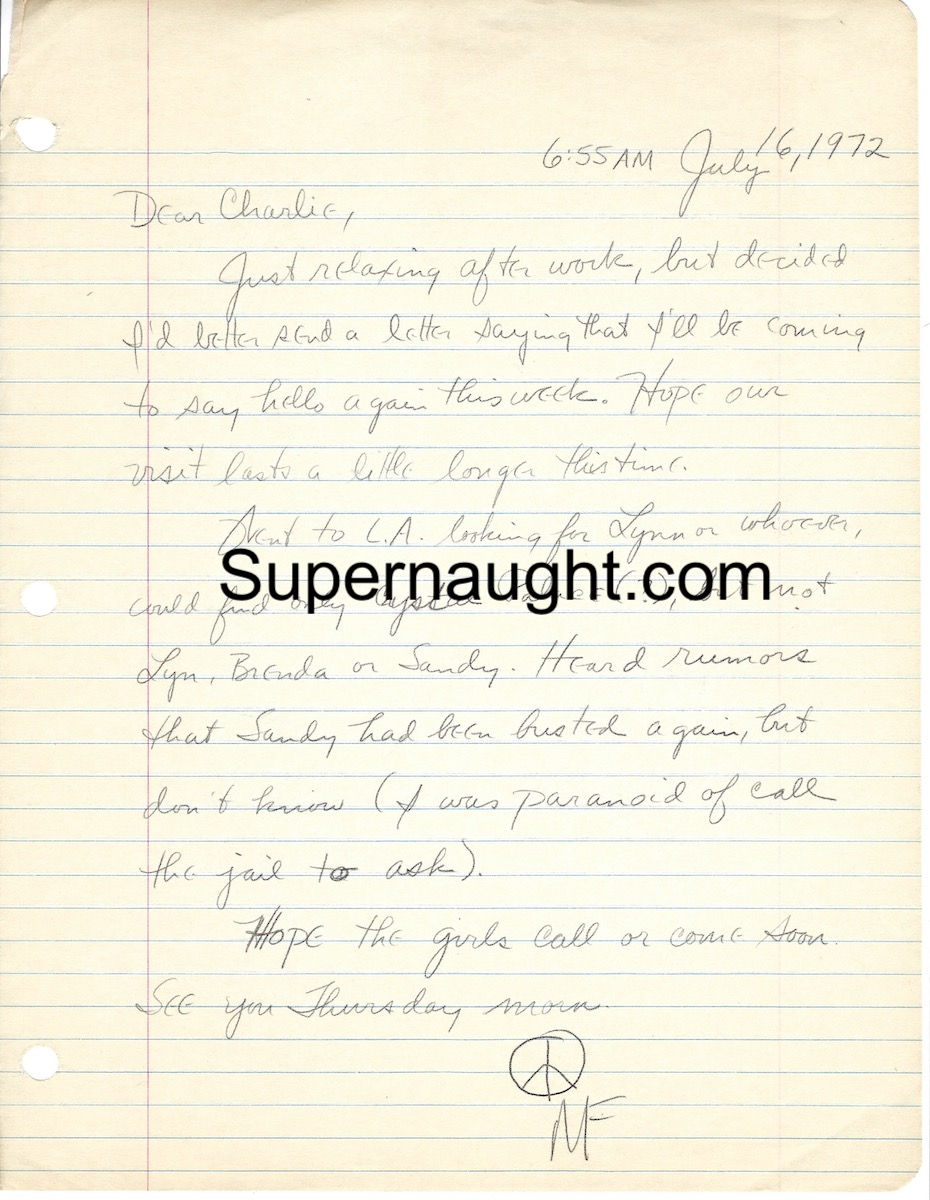 6:55AM July 16, 1972
Dear Charlie,
Just relaxing after work, but decided
I'd better send a letter saying that I'll be coming
to say hello again this week. Hope our
visit lasts a little longer this time.
Went to L.A. looking for Lynn or whoever,
Supernaught.com
could find only (?), but not
Lyn, Brenda or Sandy. Heard rumors
that Sandy had been busted again, but
don't know (I was paranoid of call
the jail to ask).
Hope the girls call or come soon.
See you Thursday morn.
MF